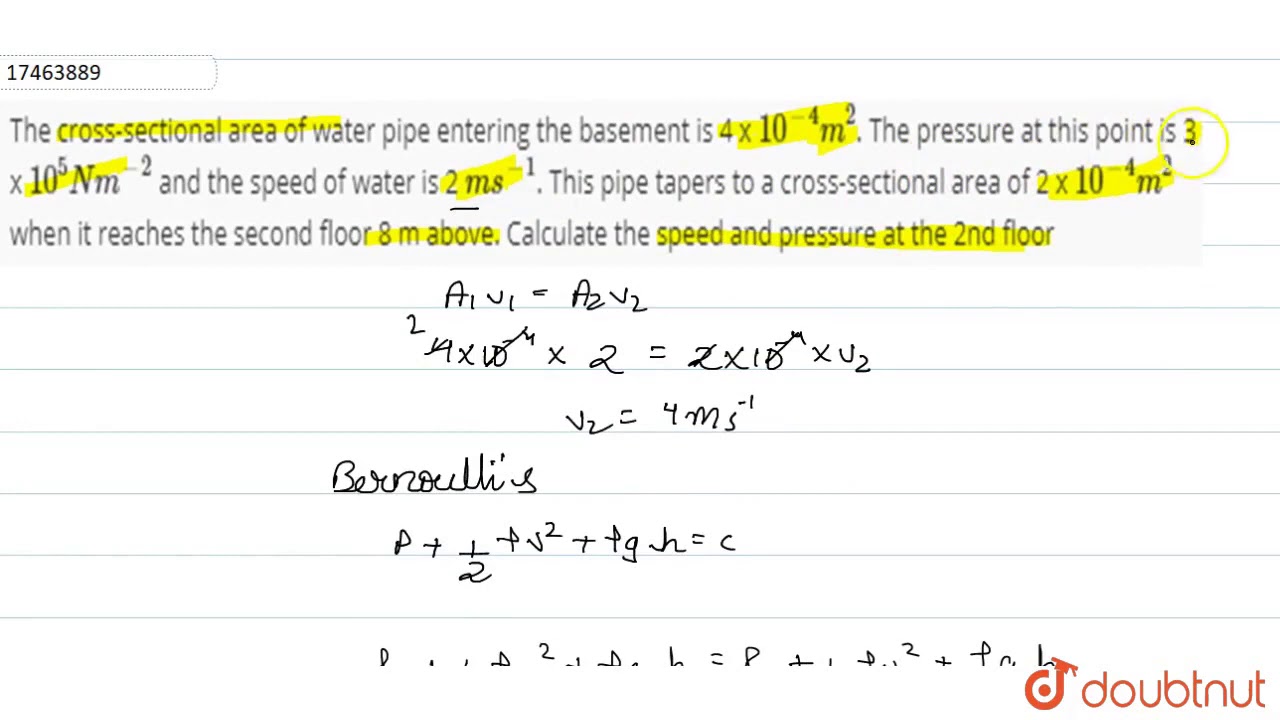 17463889
The cross-sectional area of water pipe entering the basement is 4 x 10⁻⁴m². The pressure at this point is 3
x 10⁵Nm⁻² and the speed of water is 2 ms⁻¹. This pipe tapers to a cross-sectional area of 2 x 10⁻⁴m²
when it reaches the second floor 8 m above. Calculate the speed and pressure at the 2nd floor
A₁v₁ = A₂v₂
2
4x10⁻⁴ x 2 = 2x10⁻⁴ x v₂
v₂ = 4ms⁻¹
Bernoulli's
P + 1/2 ρv² + ρgh = c
doubtnut